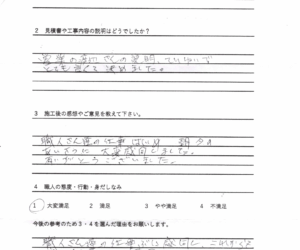 2 見積書や工事内容の説明はどうでしたか？
営業の さんの説明、ていねいで
とても良くて決めました。
3 施工後の感想やご意見を教えて下さい。
職人さん達の仕事ぶり 朝夕の
あいさつに大変感同しました。
ありがとうございました。
4 職人の態度・行動・身だしなみ
1 大変満足 2 満足 3 やや満足 4 不満足
今後の参考のため3・4を選んだ理由をお願いします。
職人さん達の仕事ぶり感同し、これから